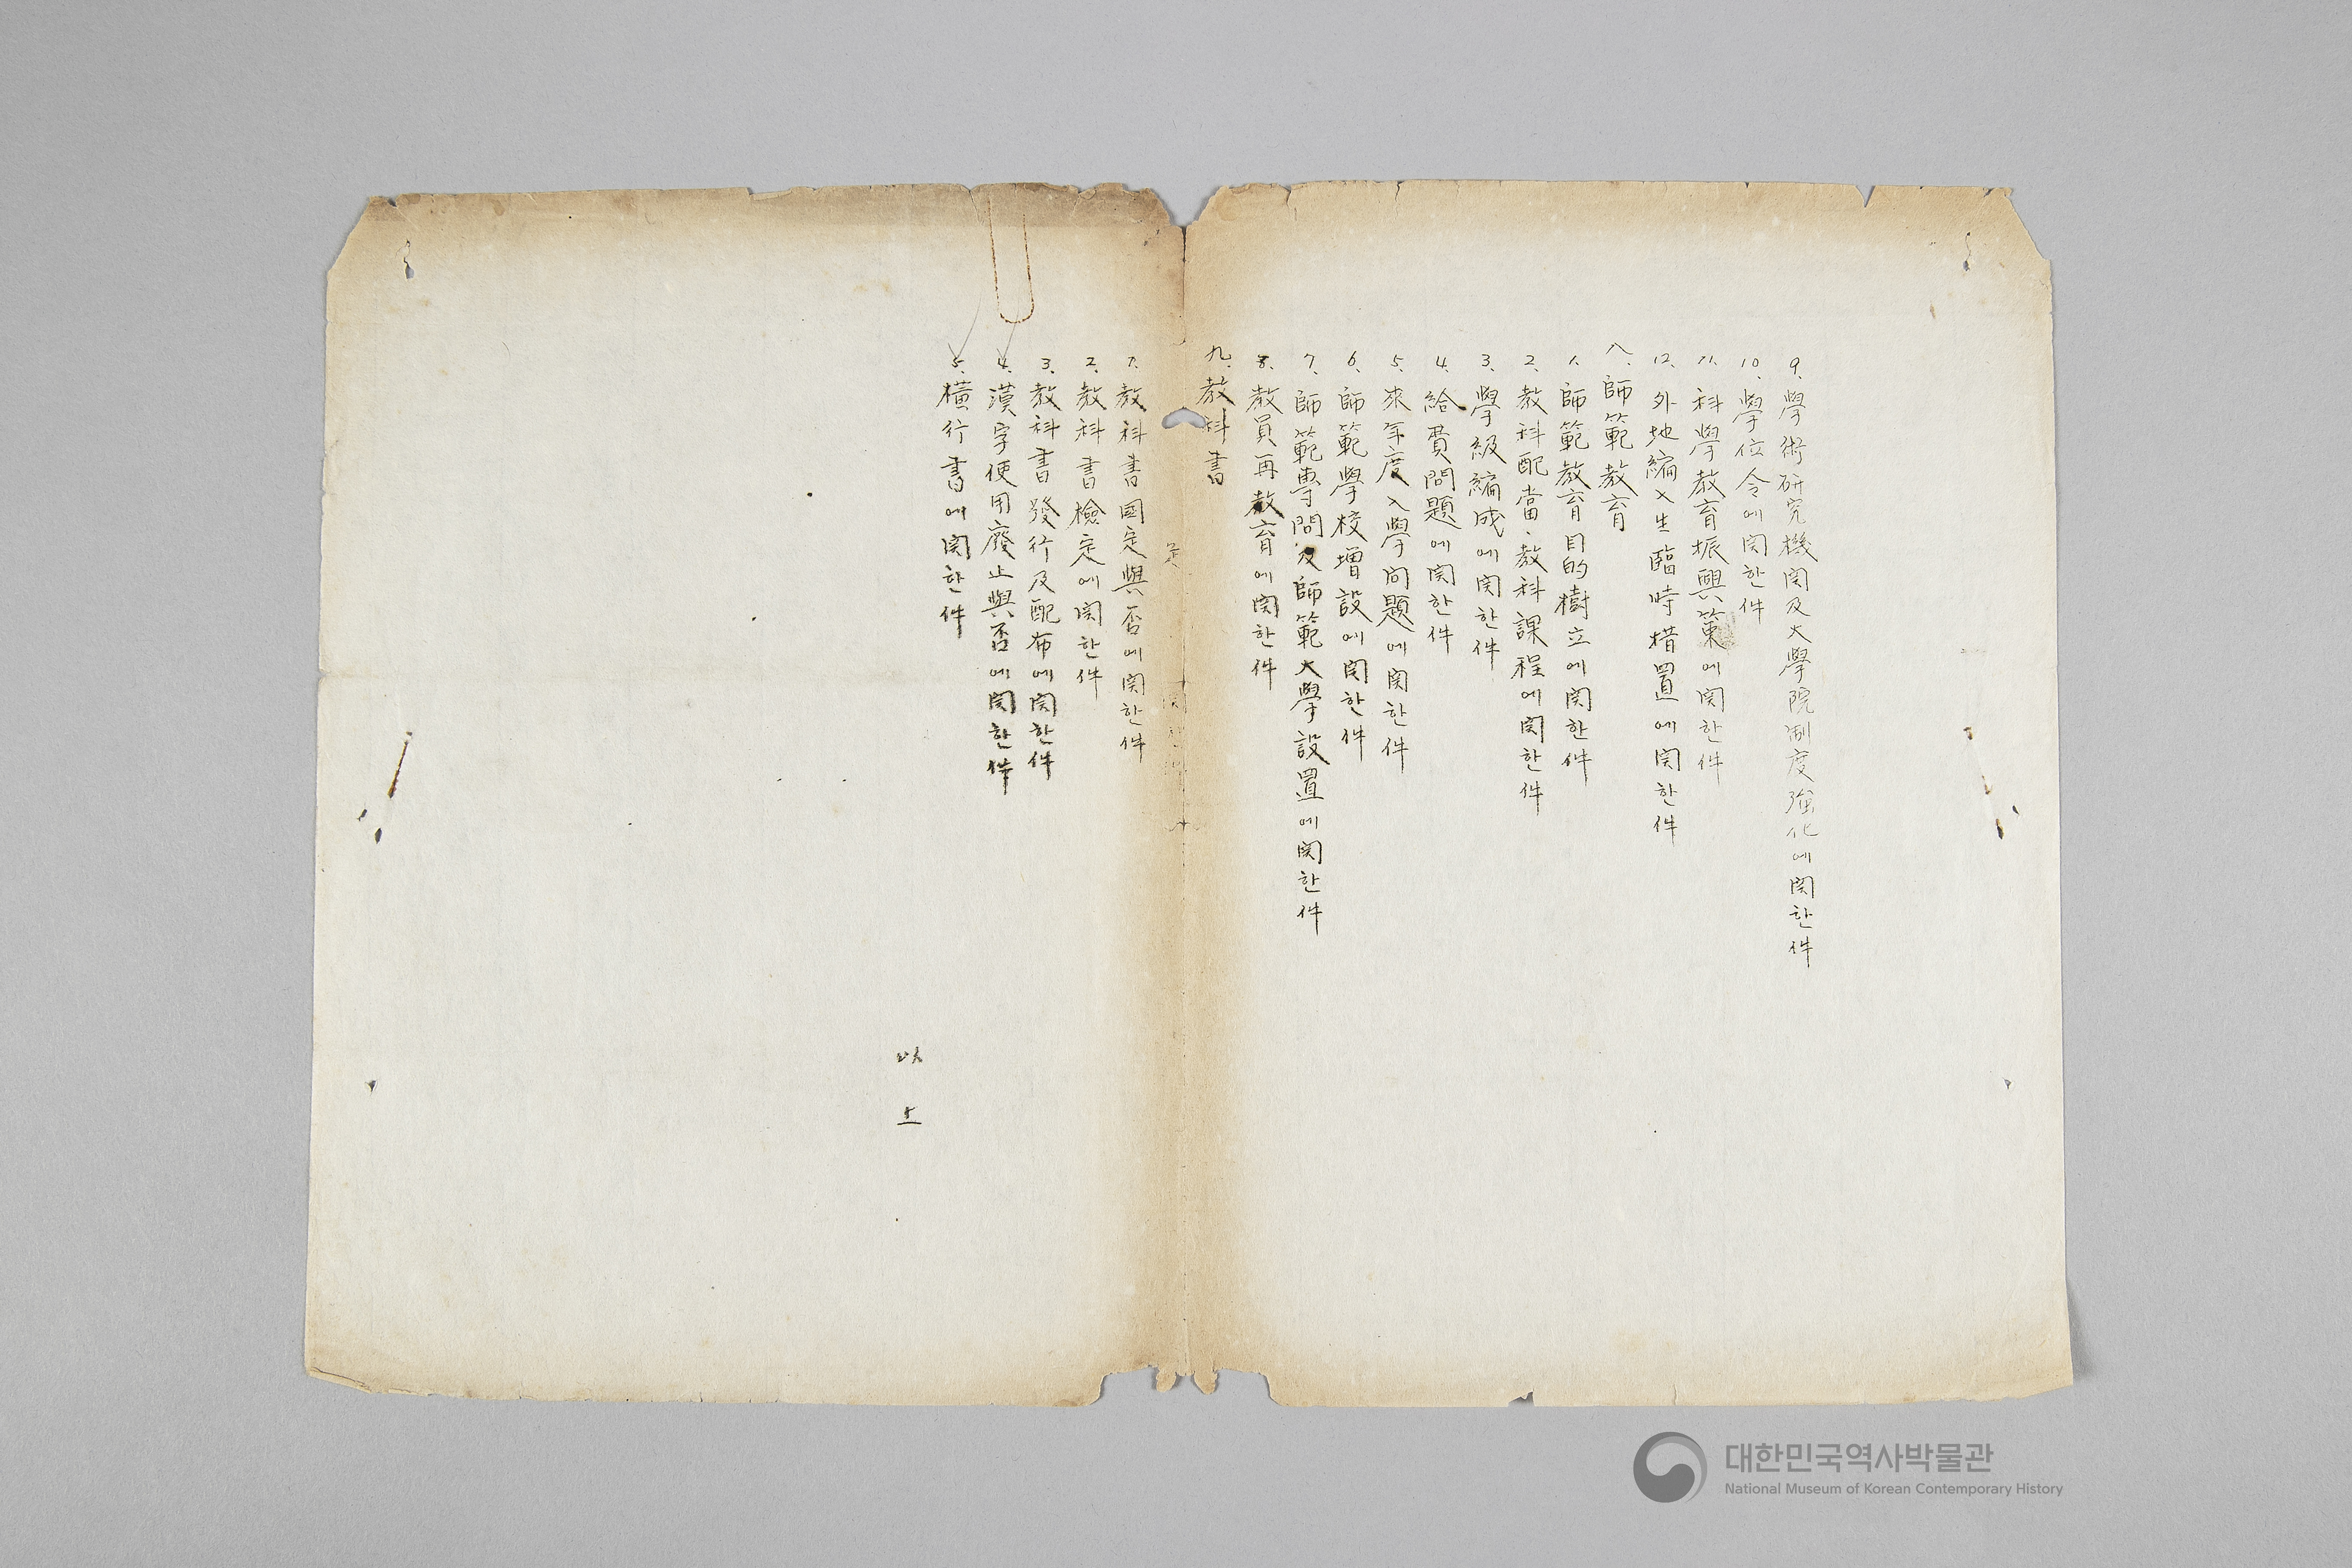 9. 學術硏究機関及大學院制度強化에関한件
10. 學位令에関한件
11. 科學敎育振興策에関한件
12. 外地編入生臨時措置에関한件
八. 師範敎育
1. 師範敎育目的樹立에関한件
2. 敎科配當·敎科課程에関한件
3. 學級編成에関한件
4. 給費問題에関한件
5. 來年度入學問題에関한件
6. 師範學校増設에関한件
7. 師範專問及師範大學設置에関한件
8. 敎員再敎育에関한件
九. 敎科書
1. 敎科書國定與否에関한件
2. 敎科書檢定에関한件
3. 敎科書發行及配布에関한件
4. 漢字使用廢止與否에関한件
5. 橫行書에関한件
以上
대한민국역사박물관
National Museum of Korean Contemporary History